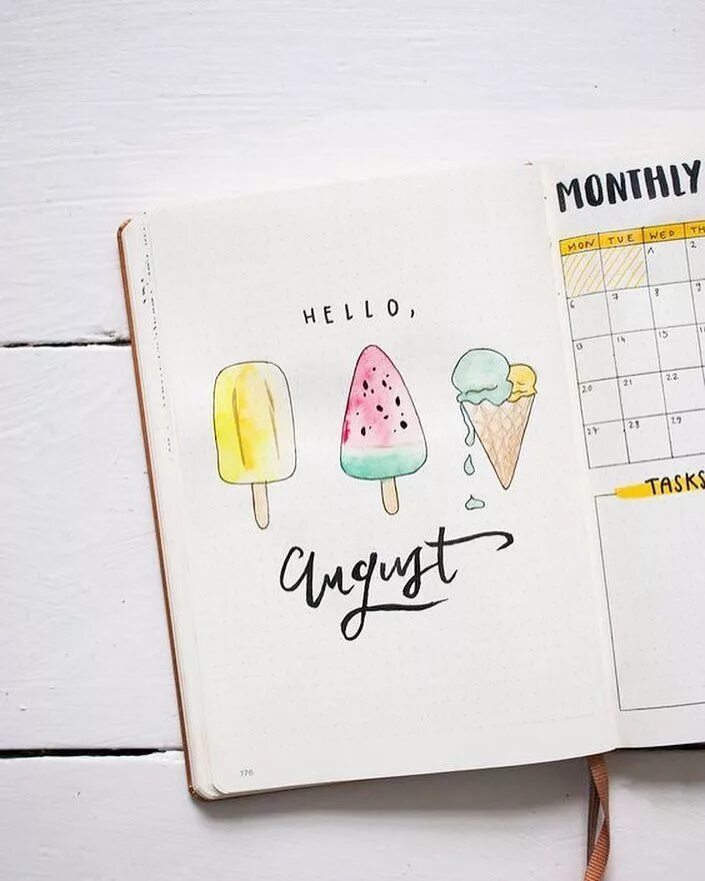 HELLO,
august
176
MONTHLY
MON TUE WED TH
1 2
6 7 8 9
13 14 15
20 21 22
27 28 29
TASKS